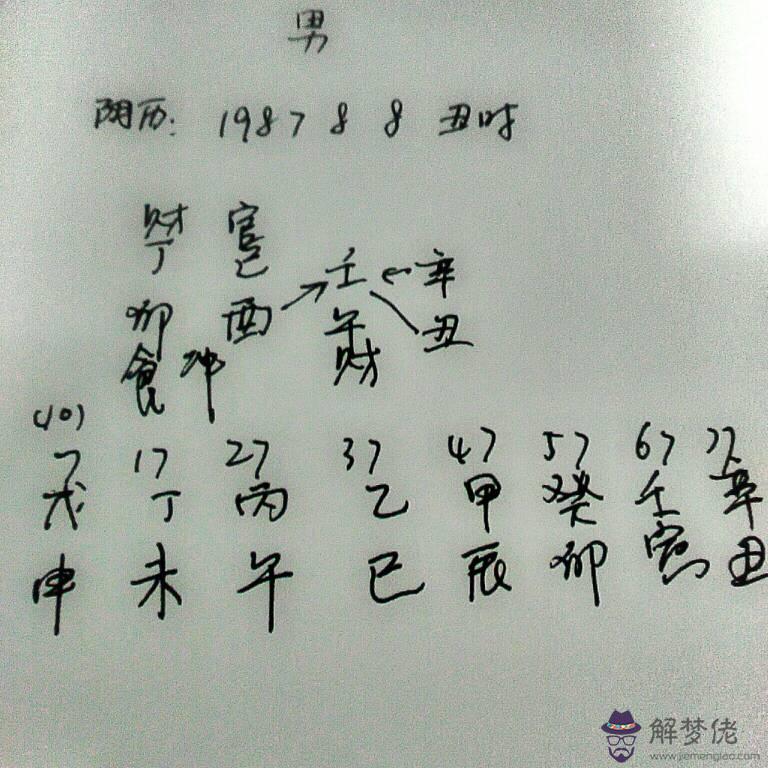 男
阴历: 1987 8 8 丑时
财 官
丁 己 壬 辛
卯 酉 午 丑
食 冲 财
(10)
7 17 27 37 47 57 67 77
戊 丁 丙 乙 甲 癸 壬 辛
申 未 午 巳 辰 卯 寅 丑
解梦佬
www.jiemenglao.com